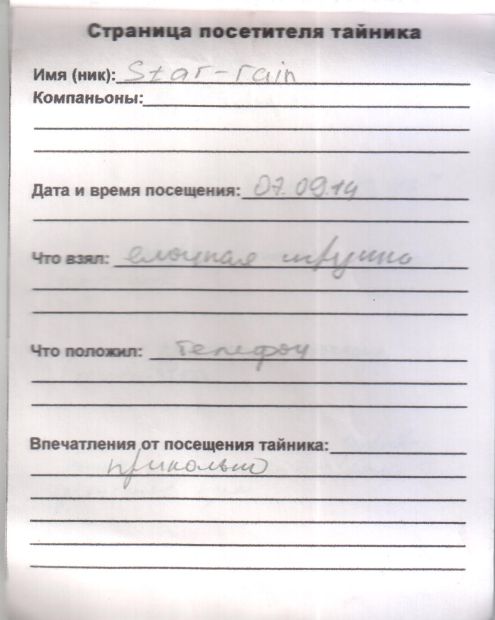 Страница посетителя тайника
Имя (ник): Star-rain
Компаньоны:
Дата и время посещения: 07.09.14
Что взял: елочная игрушка
Что положил: телефон
Впечатления от посещения тайника:
прикольно